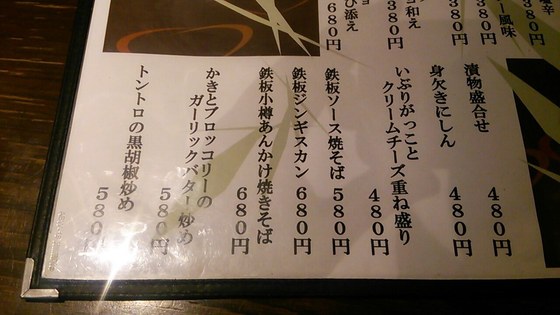 塩辛
380円
ー風味
380円
380円
コ和え
380円
び添え
680円
漬物盛合せ
480円
身欠きにしん
480円
いぶりがっこと
クリームチーズ重ね盛り
480円
鉄板ソース焼そば
580円
鉄板ジンギスカン
680円
鉄板小樽あんかけ焼きそば
680円
かきとブロッコリーの
ガーリックバター炒め
580円
トントロの黒胡椒炒め
580円